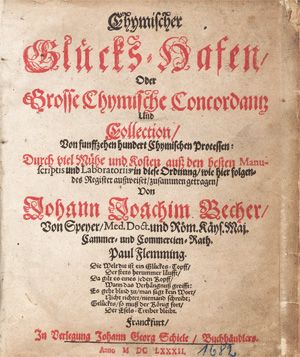 Chymischer
Glücks-Hafen/
Oder
Grosse Chymische Concordantz
Und
Collection/
Von funffzehen hundert Chymischen Processen:
Durch viel Mühe und Kosten auß den besten Manu-
scriptis und Laboratoriis in diese Ordnung/ wie hier folgen-
des Register außweiset/ zusammen getragen/
Von
Johann Joachim Becher/
Von Speyer/ Med. Doct. und Röm. Käys. Maj.
Cammer- und Commercien-Rath.
Paul Flemming.
Die Welt die ist ein Glückes-Topff/
Der stets herummer läufft/
Da gibt es eines jeden Kopff/
Wann das Verhängnuß greifft:
Es geht blind zu/ man sagt kein Wort/
Nicht richtet/ niemand schreibt;
Glücks/ so muß der König fort/
Der Esels-Treiber bleibt.
Franckfurt/
In Verlegung Johann Georg Schiele/ Buchhändlers.
Anno M DC LXXXII.
1682